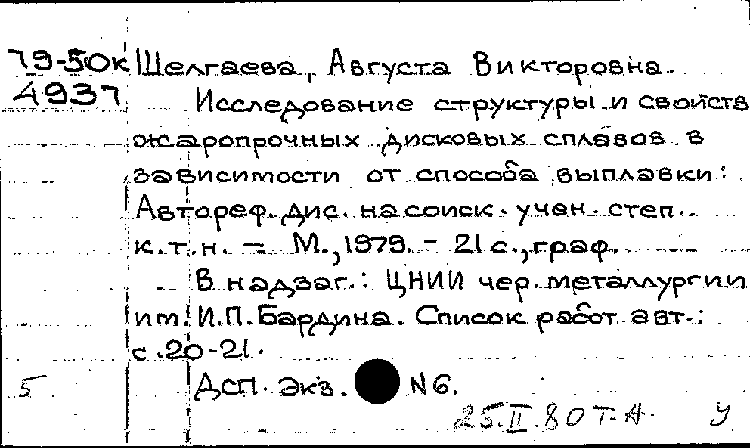 79-50к Шелгаева, Августа Викторовна.
4937 Исследование структуры и свойств
жаропрочных дисковых сплавов в
зависимости от способа выплавки:
Автореф. дис. на соиск. учен. степ.
к.т.н. - М., 1979. - 21 с., граф.
В надзаг.: ЦНИИ чер. металлургии
им. И.П. Бардина. Список работ авт.:
с. 20-21.
5 ДСП. Экз. N6.
25.II.80 Т.А. У